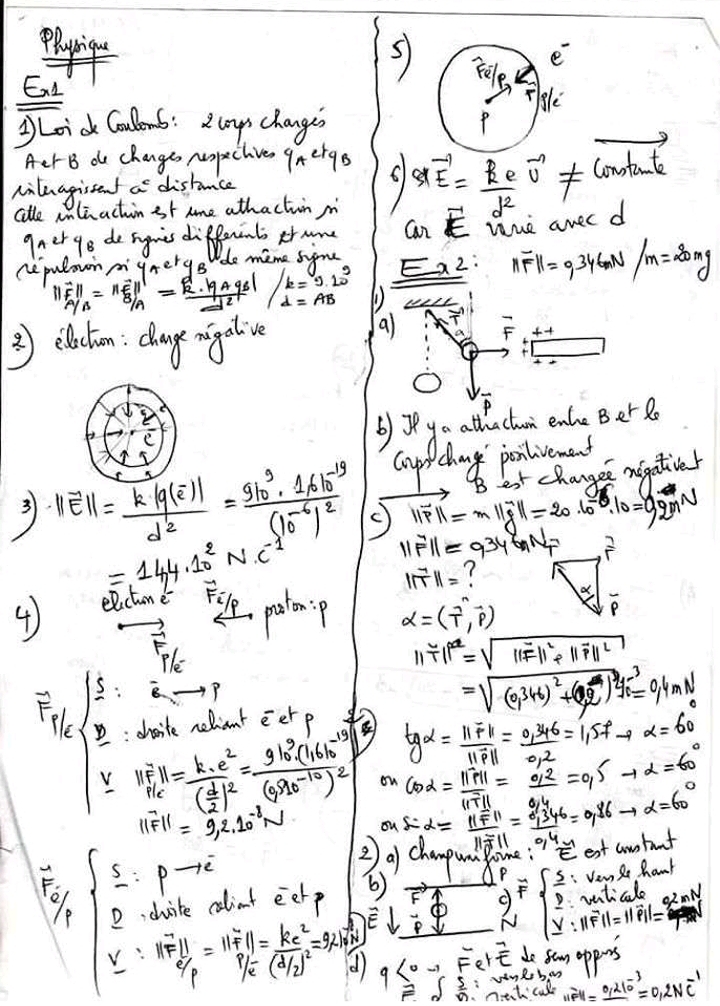 Physique
Ex1
1) Loi de Coulomb : 2 corps chargés
A et B de charges respectives qA et qB
interagissent à distance
cette intéraction est une attraction si
qA et qB de signes différents et une
répulsion si qA et qB de même signe
||F⃗||A/B = ||F⃗||B/A = k.|qA qB| / d² / k = 9.10⁹
d = AB
2) électron : charge négative
e⁻
3) ||E⃗|| = k |q(e⁻)| / d² = 9 10⁹ . 1,6 10⁻¹⁹ / (10⁻⁶)²
= 14,4.10² N.C⁻¹
4) électron e⁻ F⃗e⁻/p proton : p
F⃗p/e⁻
F⃗p/e⁻ S : e⁻ → p
D : droite reliant e⁻ et p
V : ||F⃗||p/e = k.e² / (d/2)² = 9 10⁹.(1,6 10⁻¹⁹)² / (0,5 10⁻¹⁰)²
||F⃗|| = 9,2.10⁻⁸ N
F⃗e⁻/p S : p → e⁻
D : droite reliant e⁻ et p
V : ||F⃗||e⁻/p = ||F⃗||p/e⁻ = ke² / (d/2)² = 9,2 10⁻⁸ N
5) F⃗e⁻/p e⁻
p F⃗p/e⁻
6) E⃗ = k e / d² U⃗ ≠ Constante
Car E⃗ varie avec d
Ex2 : ||F⃗|| = 0,346 mN / m = 20 mg
1)
a) T⃗ α F⃗ ++ + + ++
P⃗
b) Il y a attraction entre B et le
corps chargé positivement
B est chargée négativent
c) ||P⃗|| = m ||g⃗|| = 20.10⁻⁶.10 = 0,2 mN
||F⃗|| = 0,346 mN
||T⃗|| = ?
T⃗ F⃗ α P⃗
α = (T⃗, P⃗)
||T⃗|| = √ ||F⃗||² + ||P⃗||²
= √ (0,346)² + (0,2)² 10⁻³ = 0,4 mN
tg α = ||F⃗|| / ||P⃗|| = 0,346 / 0,2 = 1,57 → α = 60°
ou Cos α = ||P⃗|| / ||T⃗|| = 0,2 / 0,4 = 0,5 → α = 60°
ou Si α = ||F⃗|| / ||T⃗|| = 0,346 / 0,4 = 0,86 → α = 60°
2) a) Champ uniforme : E⃗ est constant
b) E⃗ F⃗ P⃗ P N
c) F⃗ S : vers le haut
D : verticale
V : ||F⃗|| = ||P⃗|| = 0,2 mN
d) q < 0 → F⃗ et E⃗ de sens opposés
S : vers le bas
D : verticale